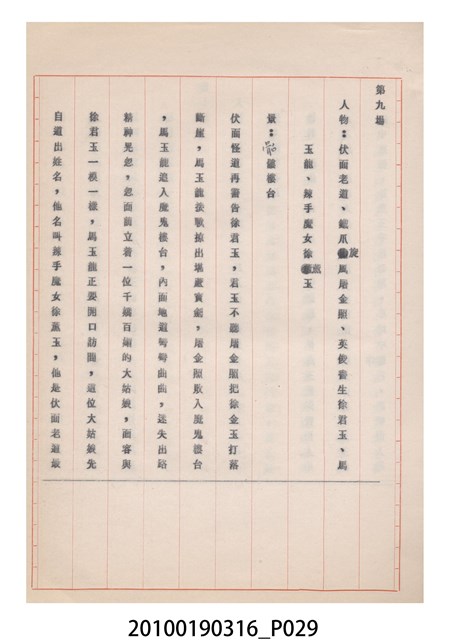 第九場
人物：伏面老道、銀爪旋風屠金照、英俊書生徐君玉、馬
玉龍、辣手魔女徐薰玉
景：骷髏樓台
伏面怪道再警告徐君玉，君玉不聽屠金照把徐金玉打落
斷崖，馬玉龍接戰掠出寶劍，屠金照敗入魔鬼樓台
，馬玉龍追入魔鬼樓台，內面地道彎彎曲曲，迷失出路
精神晃忽，忽面前立着一位千嬌百媚的大姑娘，面容與
徐君玉一模一樣，馬玉龍正要開口訪問，這位大姑娘先
自道出姓名，他名叫辣手魔女徐薰玉，他是伏面老道最
20100190316_P029